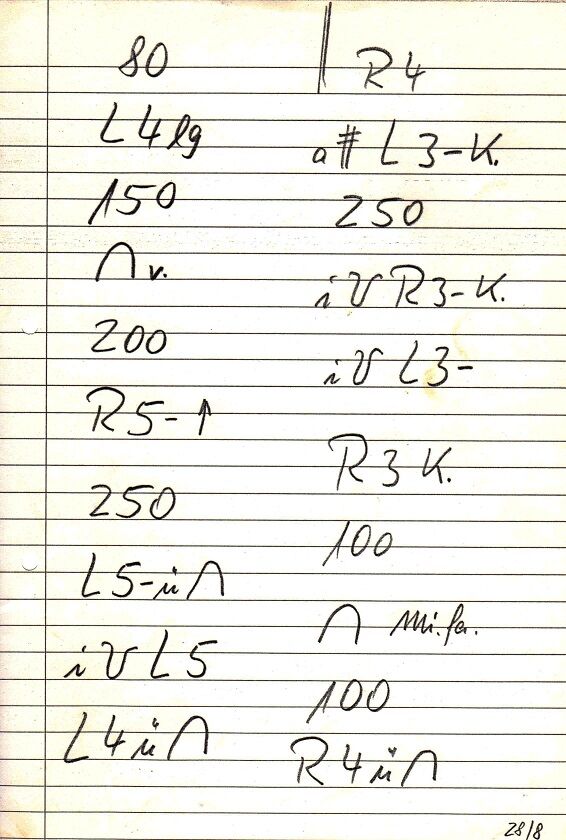 80
L4 lg
150
∩ v.
200
R5-↑
250
L5-ü∩
i V L5
L4ü∩
R4
a# L3-K.
250
i V R3-K.
i V L3-
R3 K.
100
∩ Mi.fa.
100
R4ü∩
28/8